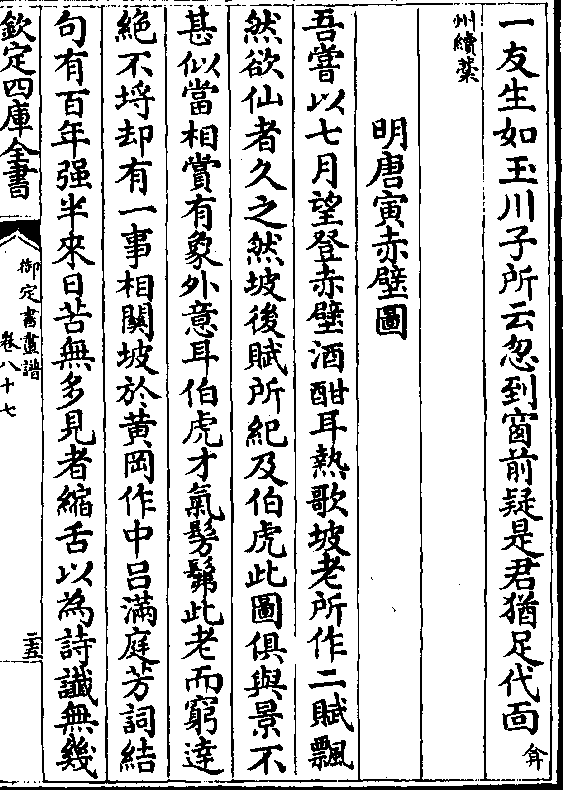 一友生如玉川子所云忽到窗前疑是君猶足代面弇
州續藁
明唐寅赤壁圖
吾嘗以七月望登赤壁酒酣耳熱歌坡老所作二賦飄
然欲仙者久之然坡後賦所紀及伯虎此圖俱與景不
甚似當相賞有象外意耳伯虎才氣髣髴此老而窮達
絕不埒却有一事相關坡於黃岡作中呂滿庭芳詞結
句有百年强半來日苦無多見者縮舌以為詩讖無幾
欽定四庫全書
御定書畫譜
卷八十七
二五